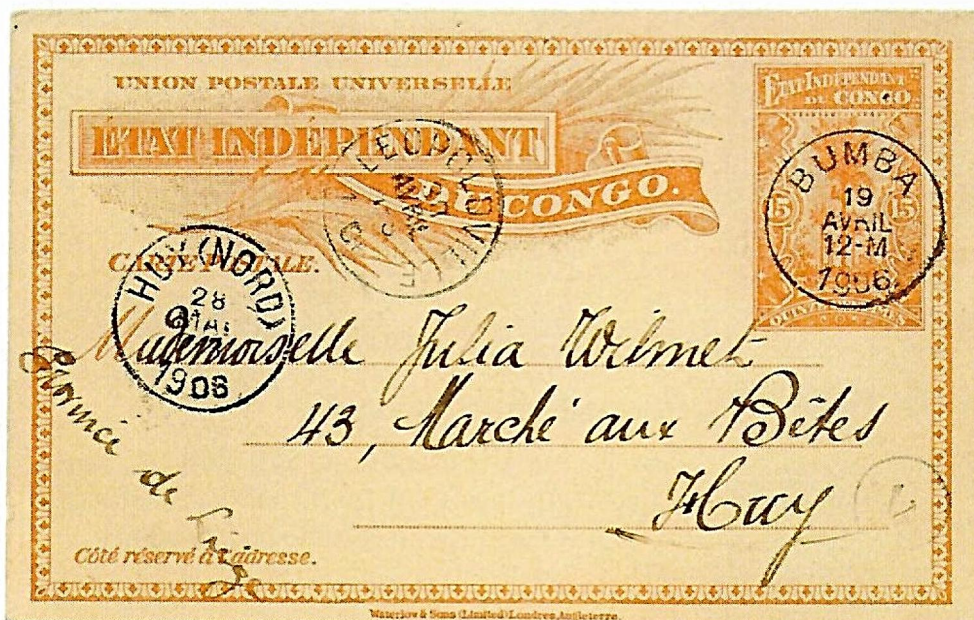 UNION POSTALE UNIVERSELLE
ÉTAT INDÉPENDANT
DU CONGO.
CARTE POSTALE.
ÉTAT INDÉPENDANT
DU CONGO
15 15
QUINZE CENTIMES
BUMBA
19
AVRIL
12-M
1906
LEOPOLDVILLE
HUY (NORD)
28
MAI
1906
Mademoiselle Julia Wilmet
43, Marché aux Bêtes
Huy
Province de Liège
Côté réservé à l'adresse.
Waterlow & Sons (Limited) Londres, Angleterre.